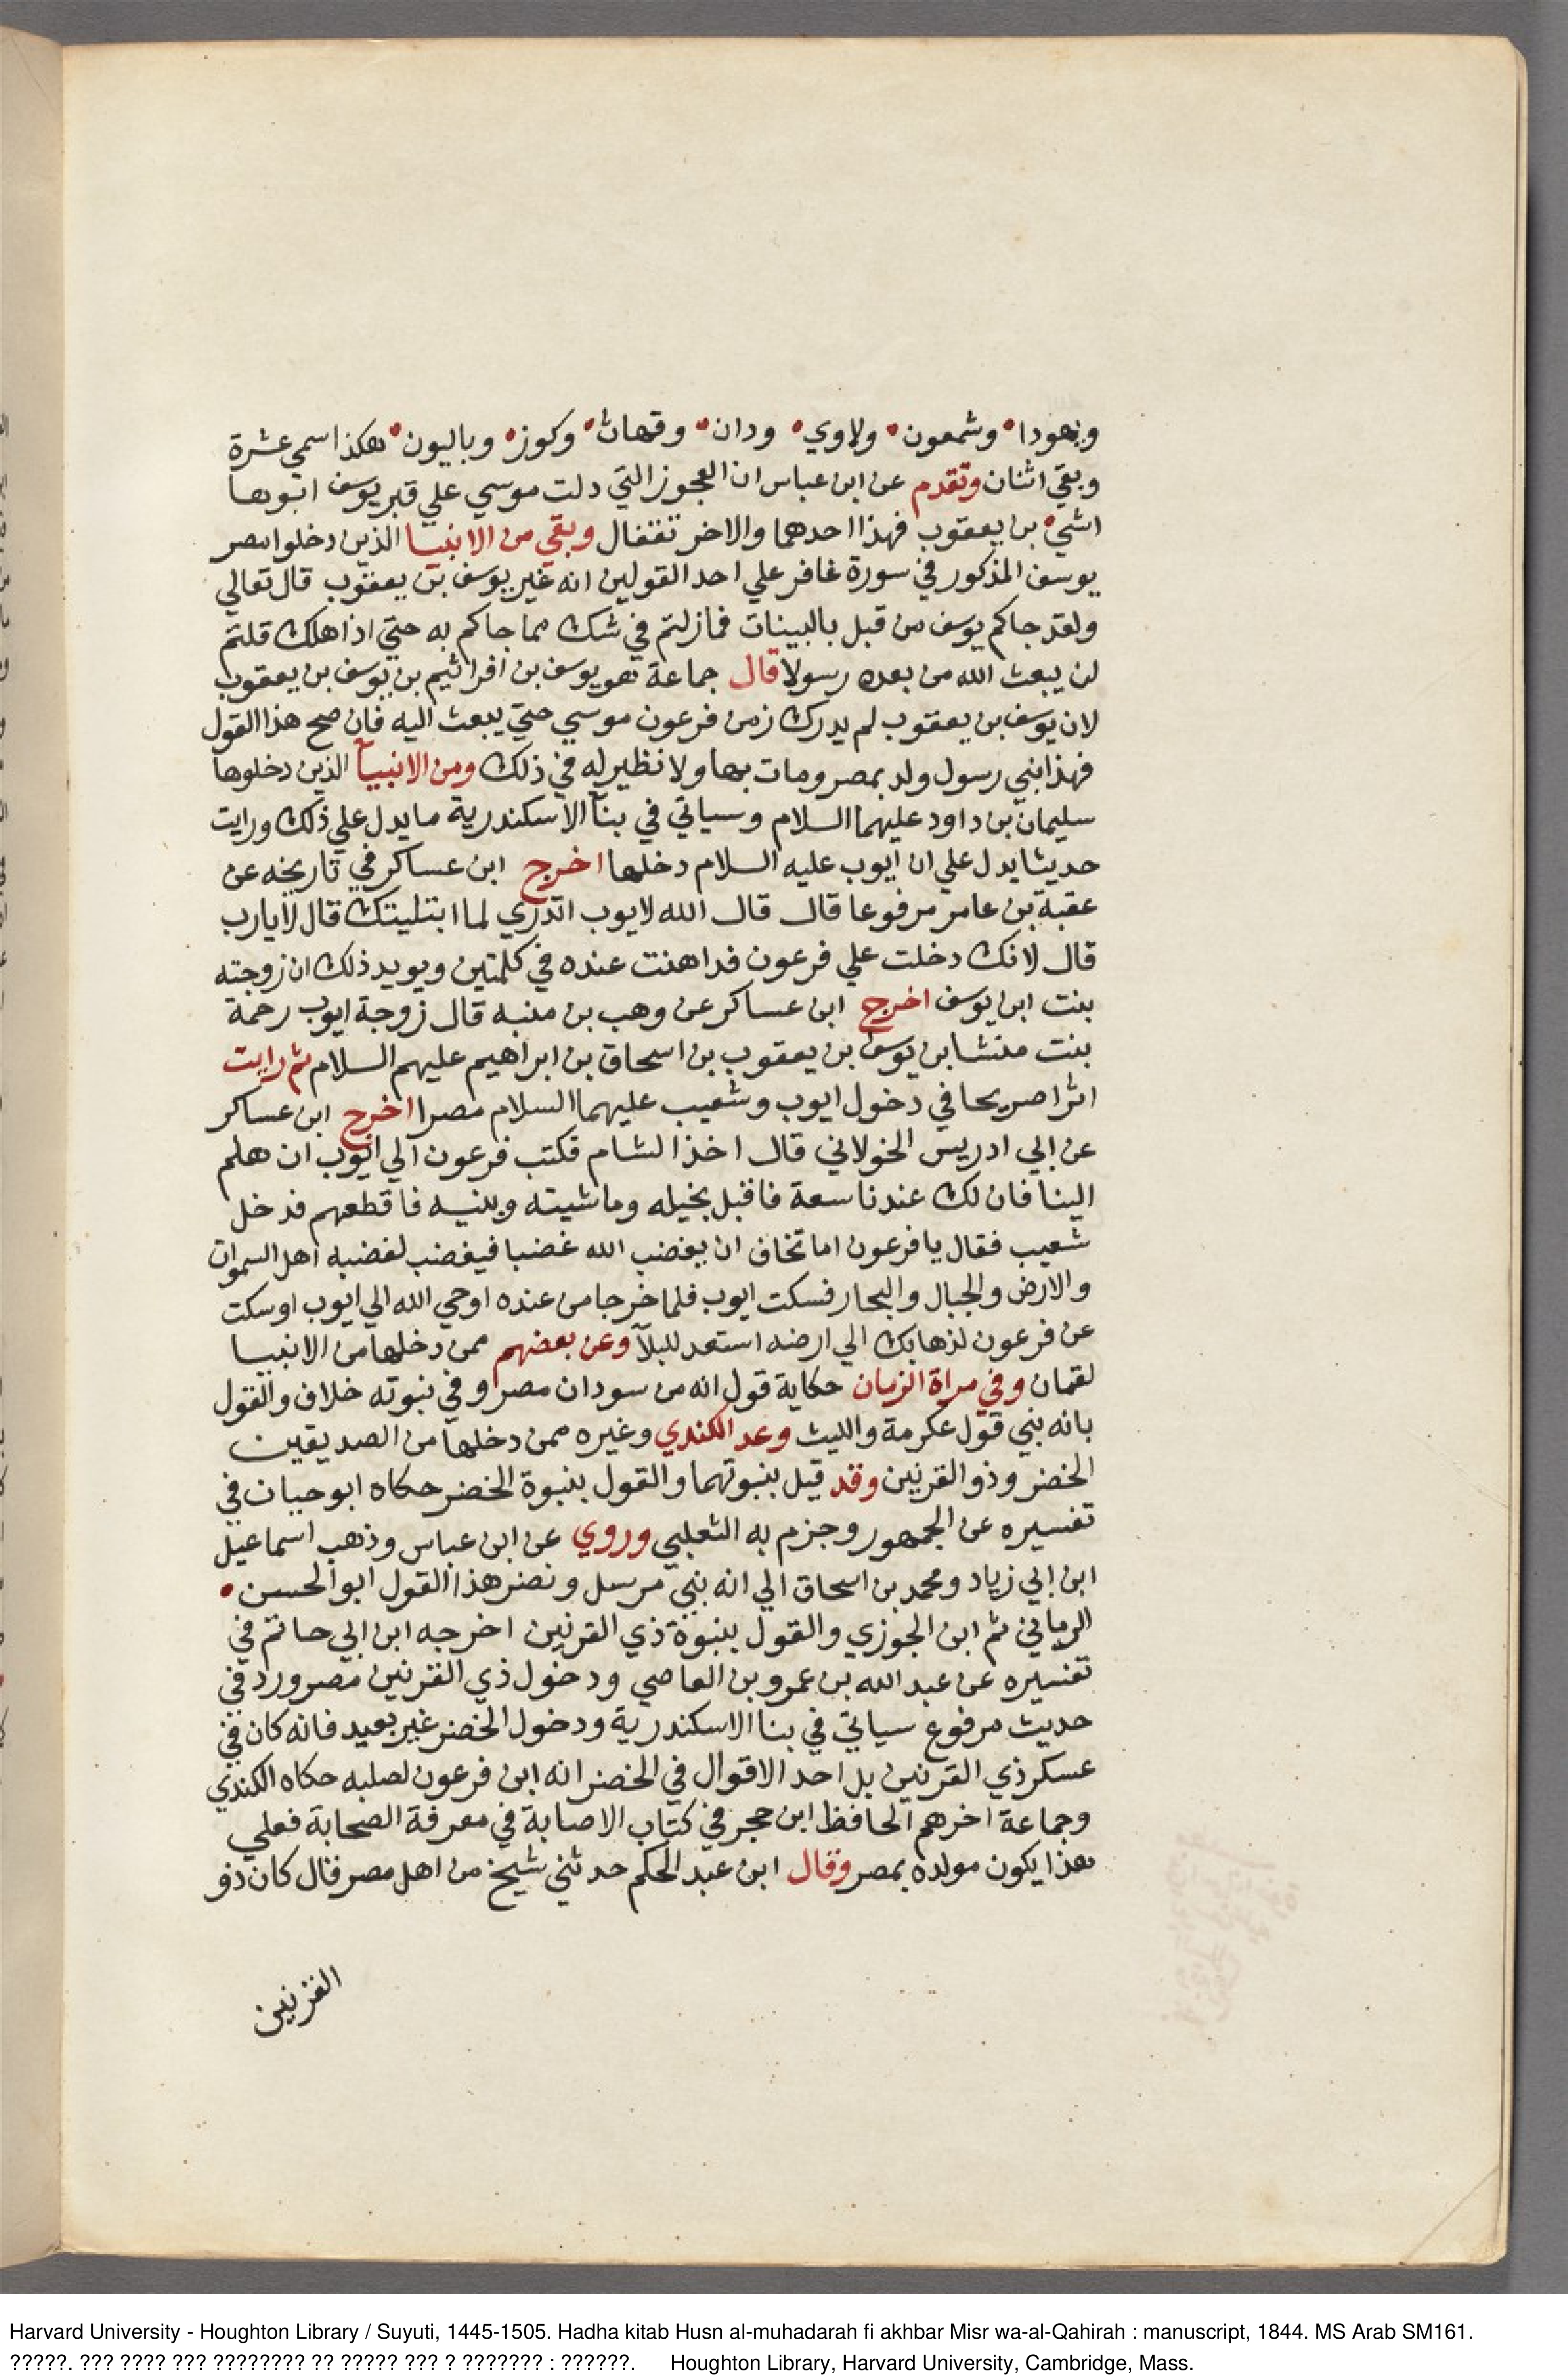 ويهودا وشمعون ولاوي ودان وقهات وكوز وباليون هكذا سمي عشرة
وبقي اثنان وتقدم عن ابن عباس ان العجوز التي دلت موسي علي قبر يوسف ابوها
اشي بن يعقوب فهذا احدهما والاخر نفتفال وبقي من الانبيا الذين دخلوا مصر
يوسف المذكور في سورة غافر علي احد القولين انه غير يوسف بن يعقوب قال تعالي
ولقد جاكم يوسف من قبل بالبينات فمازلتم في شك مما جاكم به حتي اذا هلك قلتم
لن يبعث الله من بعده رسولا قال جماعة هو يوسف بن افراثيم بن يوسف بن يعقوب
لان يوسف بن يعقوب لم يدرك زمن فرعون موسي حتي يبعث اليه فان صح هذا القول
فهذا نبي رسول ولد بمصر ومات بها ولا نظير له في ذلك ومن الانبيآ الذين دخلوها
سليمان بن داود عليهما السلام وسياتي في بنآ الاسكندرية ما يدل علي ذلك ورايت
حديثا يدل علي ان ايوب عليه السلام دخلها اخرج ابن عساكر في تاريخه عن
عقبة بن عامر مرفوعا قال قال الله لايوب اتدري لما ابتليتك قال لا يارب
قال لانك دخلت علي فرعون فداهنت عنده في كلمتين ويويد ذلك ان زوجته
بنت ابن يوسف اخرج ابن عساكر عن وهب بن منبه قال زوجة ايوب رحمة
بنت منشا بن يوسف بن يعقوب بن اسحاق بن ابراهيم عليهم السلام ثم رايت
اثرا صريحا في دخول ايوب وشعيب عليهما السلام مصرا اخرج ابن عساكر
عن ابي ادريس الخولاني قال اخذ الشام فكتب فرعون الي ايوب ان هلم
الينا فان لك عندنا سعة فاقبل بخيله وماشيته وبنيه فاقطعهم فدخل
شعيب فقال يا فرعون اما تخاف ان يغضب الله غضبا فيغضب لغضبه اهل السموات
والارض والجبال والبحار فسكت ايوب فلما خرجا من عنده اوحي الله الي ايوب اوسكت
عن فرعون لذهابك الي ارضه استعد للبلآ وعن بعضهم ممن دخلها من الانبيا
لقمان وفي مراة الزمان حكاية قول انه من سودان مصر وفي نبوته خلاف والقول
بانه نبي قول عكرمة والليث وعد الكندي وغيره ممن دخلها من الصديقين
الخضر وذو القرنين وقد قيل بنبوتهما والقول بنبوة الخضر حكاه ابو حيان في
تفسيره عن الجمهور وجزم به الثعلبي وروي عن ابن عباس وذهب اسماعيل
ابن ابي زياد ومحمد بن اسحاق الي انه نبي مرسل ونصر هذا القول ابو الحسن
الرماني ثم ابن الجوزي والقول بنبوة ذي القرنين اخرجه ابن ابي حاتم في
تفسيره عن عبد الله بن عمرو بن العاصي ودخول ذي القرنين مصر ورد في
حديث مرفوع سياتي في بنا الاسكندرية ودخول الخضر غير بعيد فانه كان في
عسكر ذي القرنين بل احد الاقوال في الخضر انه ابن فرعون لصلبه حكاه الكندي
وجماعة اخرهم الحافظ ابن حجر في كتاب الاصابة في معرفة الصحابة فعلي
هذا يكون مولده بمصر وقال ابن عبد الحكم حدثني شيخ من اهل مصر قال كان ذو
القرنين
Harvard University - Houghton Library / Suyuti, 1445-1505. Hadha kitab Husn al-muhadarah fi akhbar Misr wa-al-Qahirah : manuscript, 1844. MS Arab SM161.
?????. ??? ???? ??? ???????? ?? ????? ??? ? ??????? : ??????. Houghton Library, Harvard University, Cambridge, Mass.